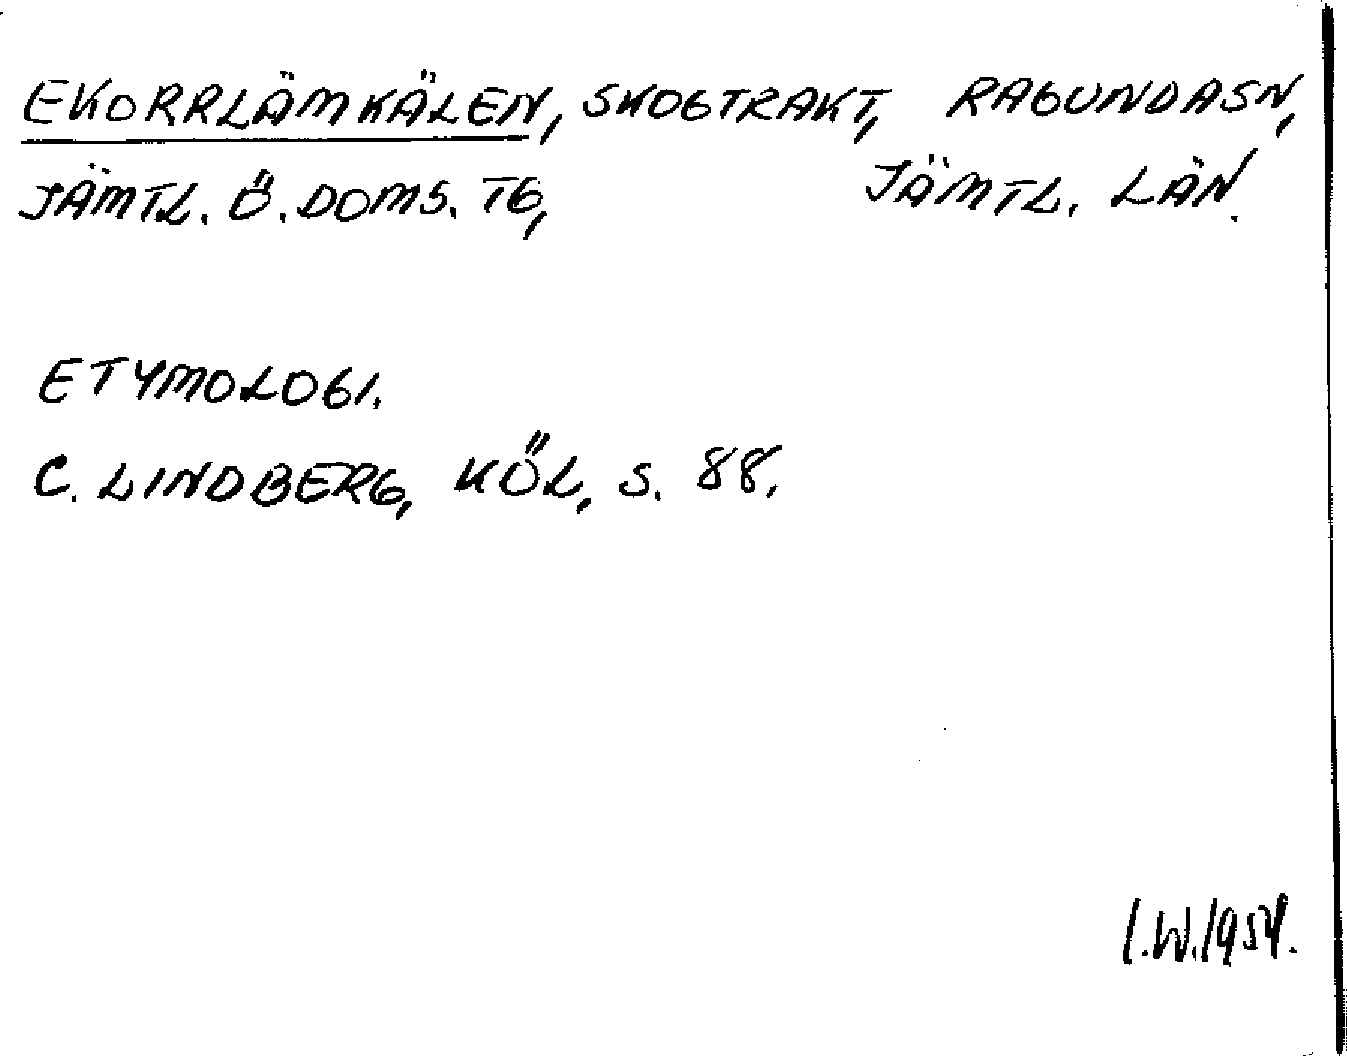 EKORRLÄMKÄLEN, SKOGTRAKT, RAGUNDASN,
JÄMTL. Ö. DOMS. TG, JÄMTL. LÄN.
ETYMOLOGI.
C. LINDBERG, KÖL, S. 88.
I.W. 1954.